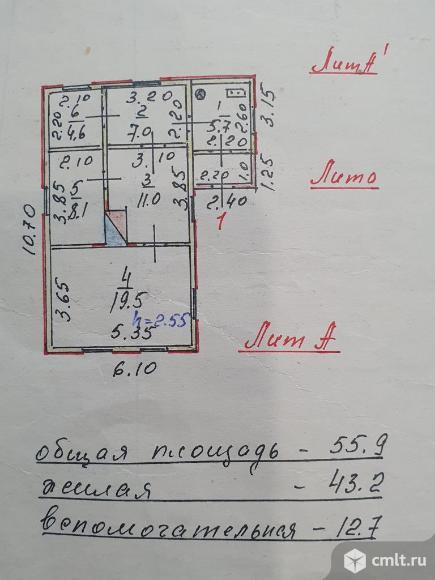 Лит А'
2.10
3.20
1
6
2
2.20
4,6
7.0
2.20
5.7
2.60
3.15
2.20
2.10
3.10
5
3
3.85
8.1
11.0
3.85
2.20
1.0
1.25
Лит о
2.40
1
10.70
4
19.5
3.65
h=2.55
5.35
Лит А
6.10
общая площадь - 55.9
жилая - 43.2
вспомогательная - 12.7
cmlt.ru